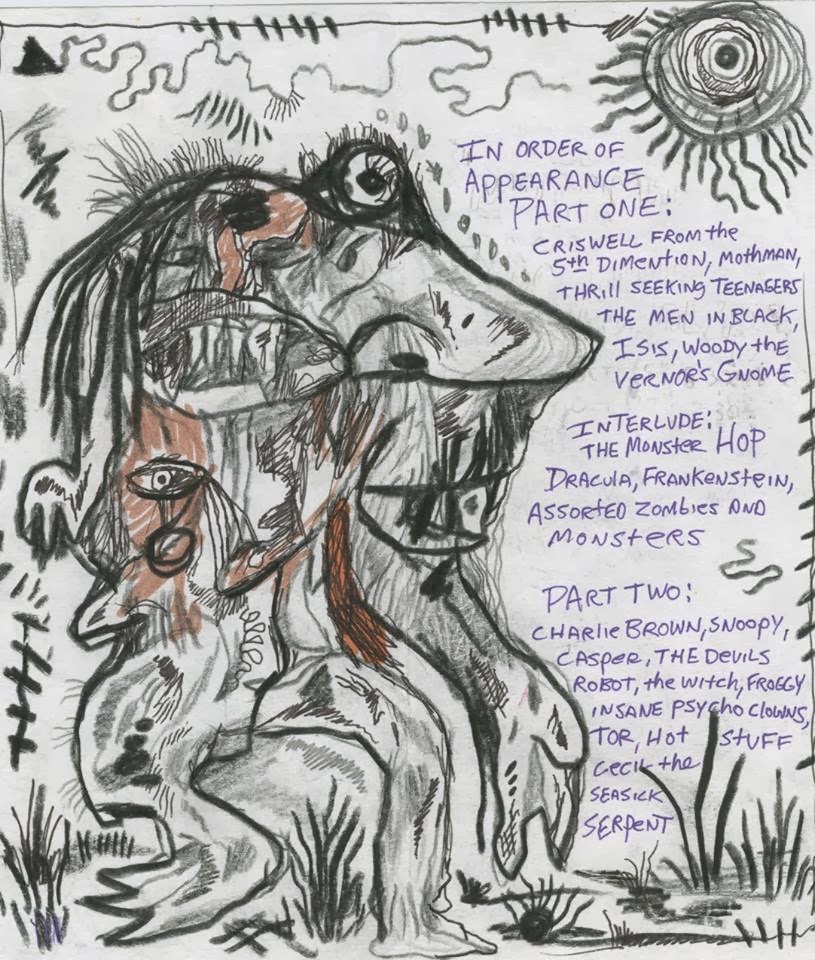 IN ORDER OF
APPEARANCE
PART ONE:
CRISWELL FROM the
5th DIMENTION, MOTHMAN,
THRILL SEEKING TEENAGERS
THE MEN IN BLACK,
ISIS, WOODY the
VERNOR'S GNOME
INTERLUDE:
THE MONSTER HOP
DRACULA, FRANKENSTEIN,
ASSORTED ZOMBIES AND
MONSTERS
PART TWO:
CHARLIE BROWN, SNOOPY,
CASPER, THE DEVILS
ROBOT, the WITCH, FROGGY
INSANE PSYCHO CLOWNS,
TOR, HOT STUFF
CECIL the
SEASICK
SERPENT